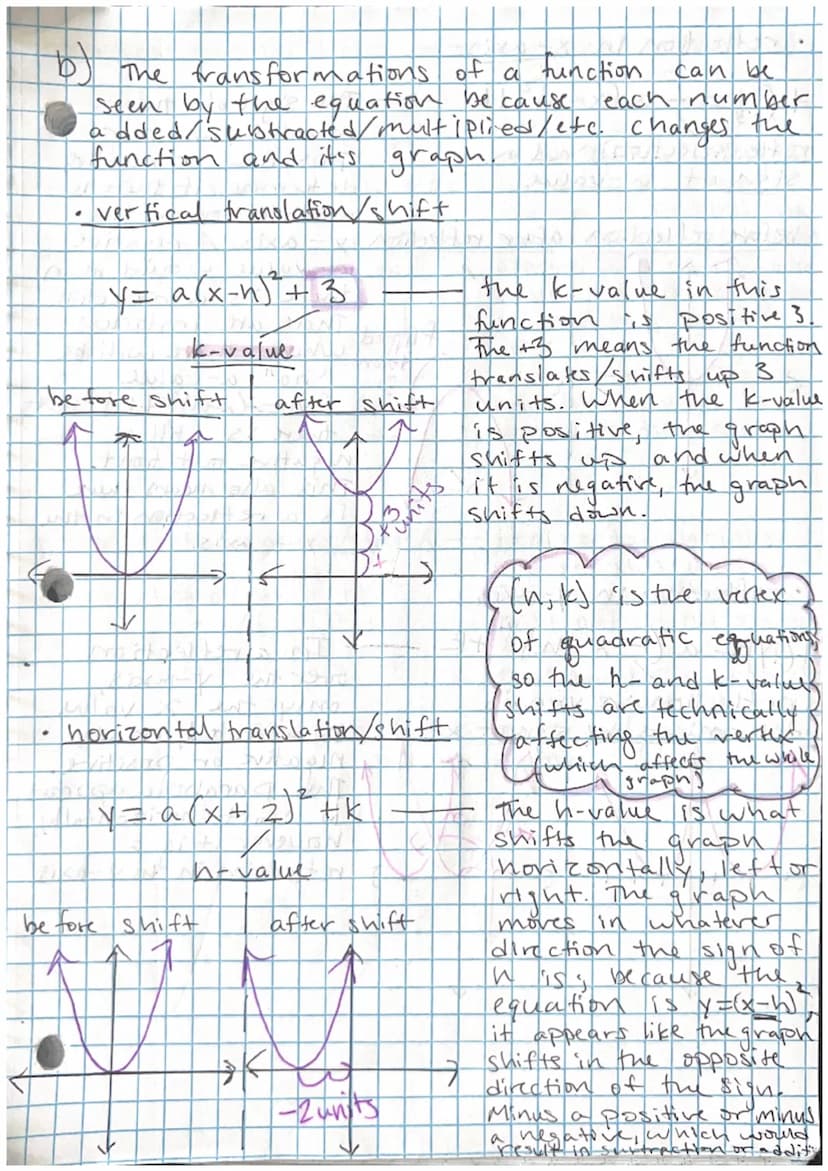 b) The transformations of a function can be
seen by the equation because each number
added/subtracted/multiplied/etc. changes the
function and it's graph.
• vertical translation/shift
y= a(x-h)²+ 3
k-value
before shift
after shift
x3
units
the k-value in this
function is positive 3.
The +3 means the function
translates/shifts up 3
units. When the k-value
is positive, the graph
shifts up and when
it is negative, the graph
shifts down.
(h, k) is the vertex
of quadratic equations,
so the h- and k-value
shifts are technically
affecting the vertex
(which affects the whole
graph)
• horizontal translation/shift
y= a(x+ 2)² +k
h-value
before shift
after shift
-2units
The h-value is what
shifts the graph
horizontally, left or
right. The graph
moves in whatever
direction the sign of
h is; because the
equation is y=(x-h)²,
it appears like the graph
shifts in the opposite
direction of the sign.
Minus a positive or minus
a negative, which would
result in subtraction or additi